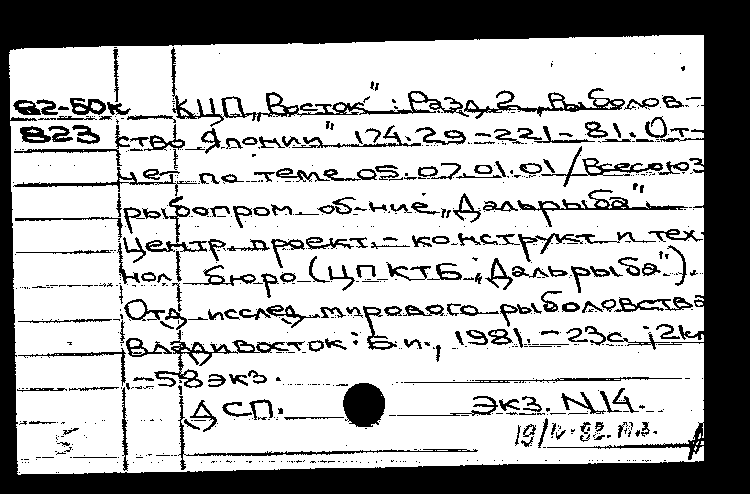 82-50к КЦП „Восток“ : Разд. 2 „Рыболов-
823 ство Японии“. 174.29-221-81. От-
чет по теме 05.07.01.01 / Всесоюз
рыбопром. об-ние „Дальрыба“.
Центр. проект.- конструкт и тех-
нол. бюро (ЦПКТБ „Дальрыба“).
Отд. исслед. мирового рыболовства
Владивосток: Б.и., 1981. - 23с. ; 2кт
.-58экз.
ДСП. экз. N14.
19/IV-82.